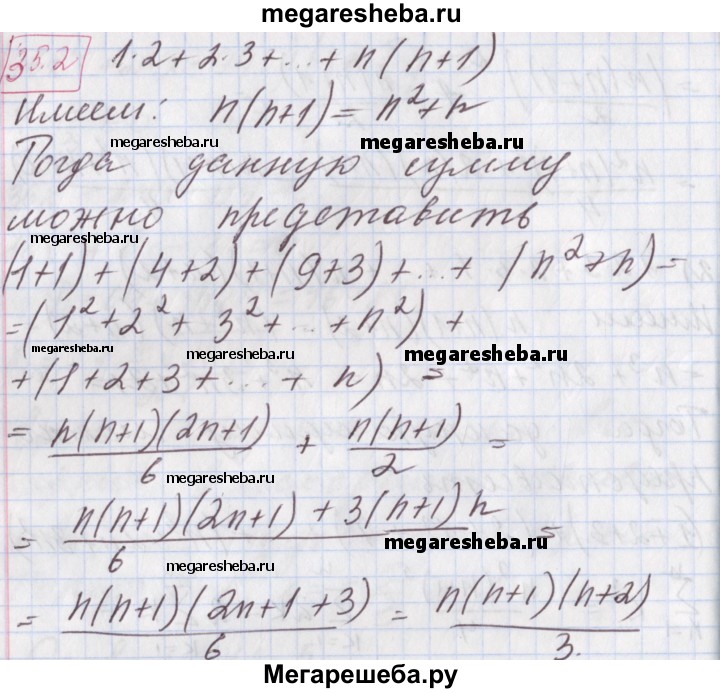 megaresheba.ru
35.2 1·2+2·3+...+n(n+1)
Имеем: n(n+1)=n²+n
megaresheba.ru megaresheba.ru
Тогда данную сумму
можно представить
megaresheba.ru
(1+1)+(4+2)+(9+3)+...+(n²+n)=
=(1²+2²+3²+...+n²)+
megaresheba.ru megaresheba.ru
+(1+2+3+...+n)=
= n(n+1)(2n+1)/6 + n(n+1)/2 =
megaresheba.ru
= n(n+1)(2n+1)+3(n+1)n/6 =
megaresheba.ru megaresheba.ru
= n(n+1)(2n+1+3)/6 = n(n+1)(n+2)/3.
Мегарешеба.ру